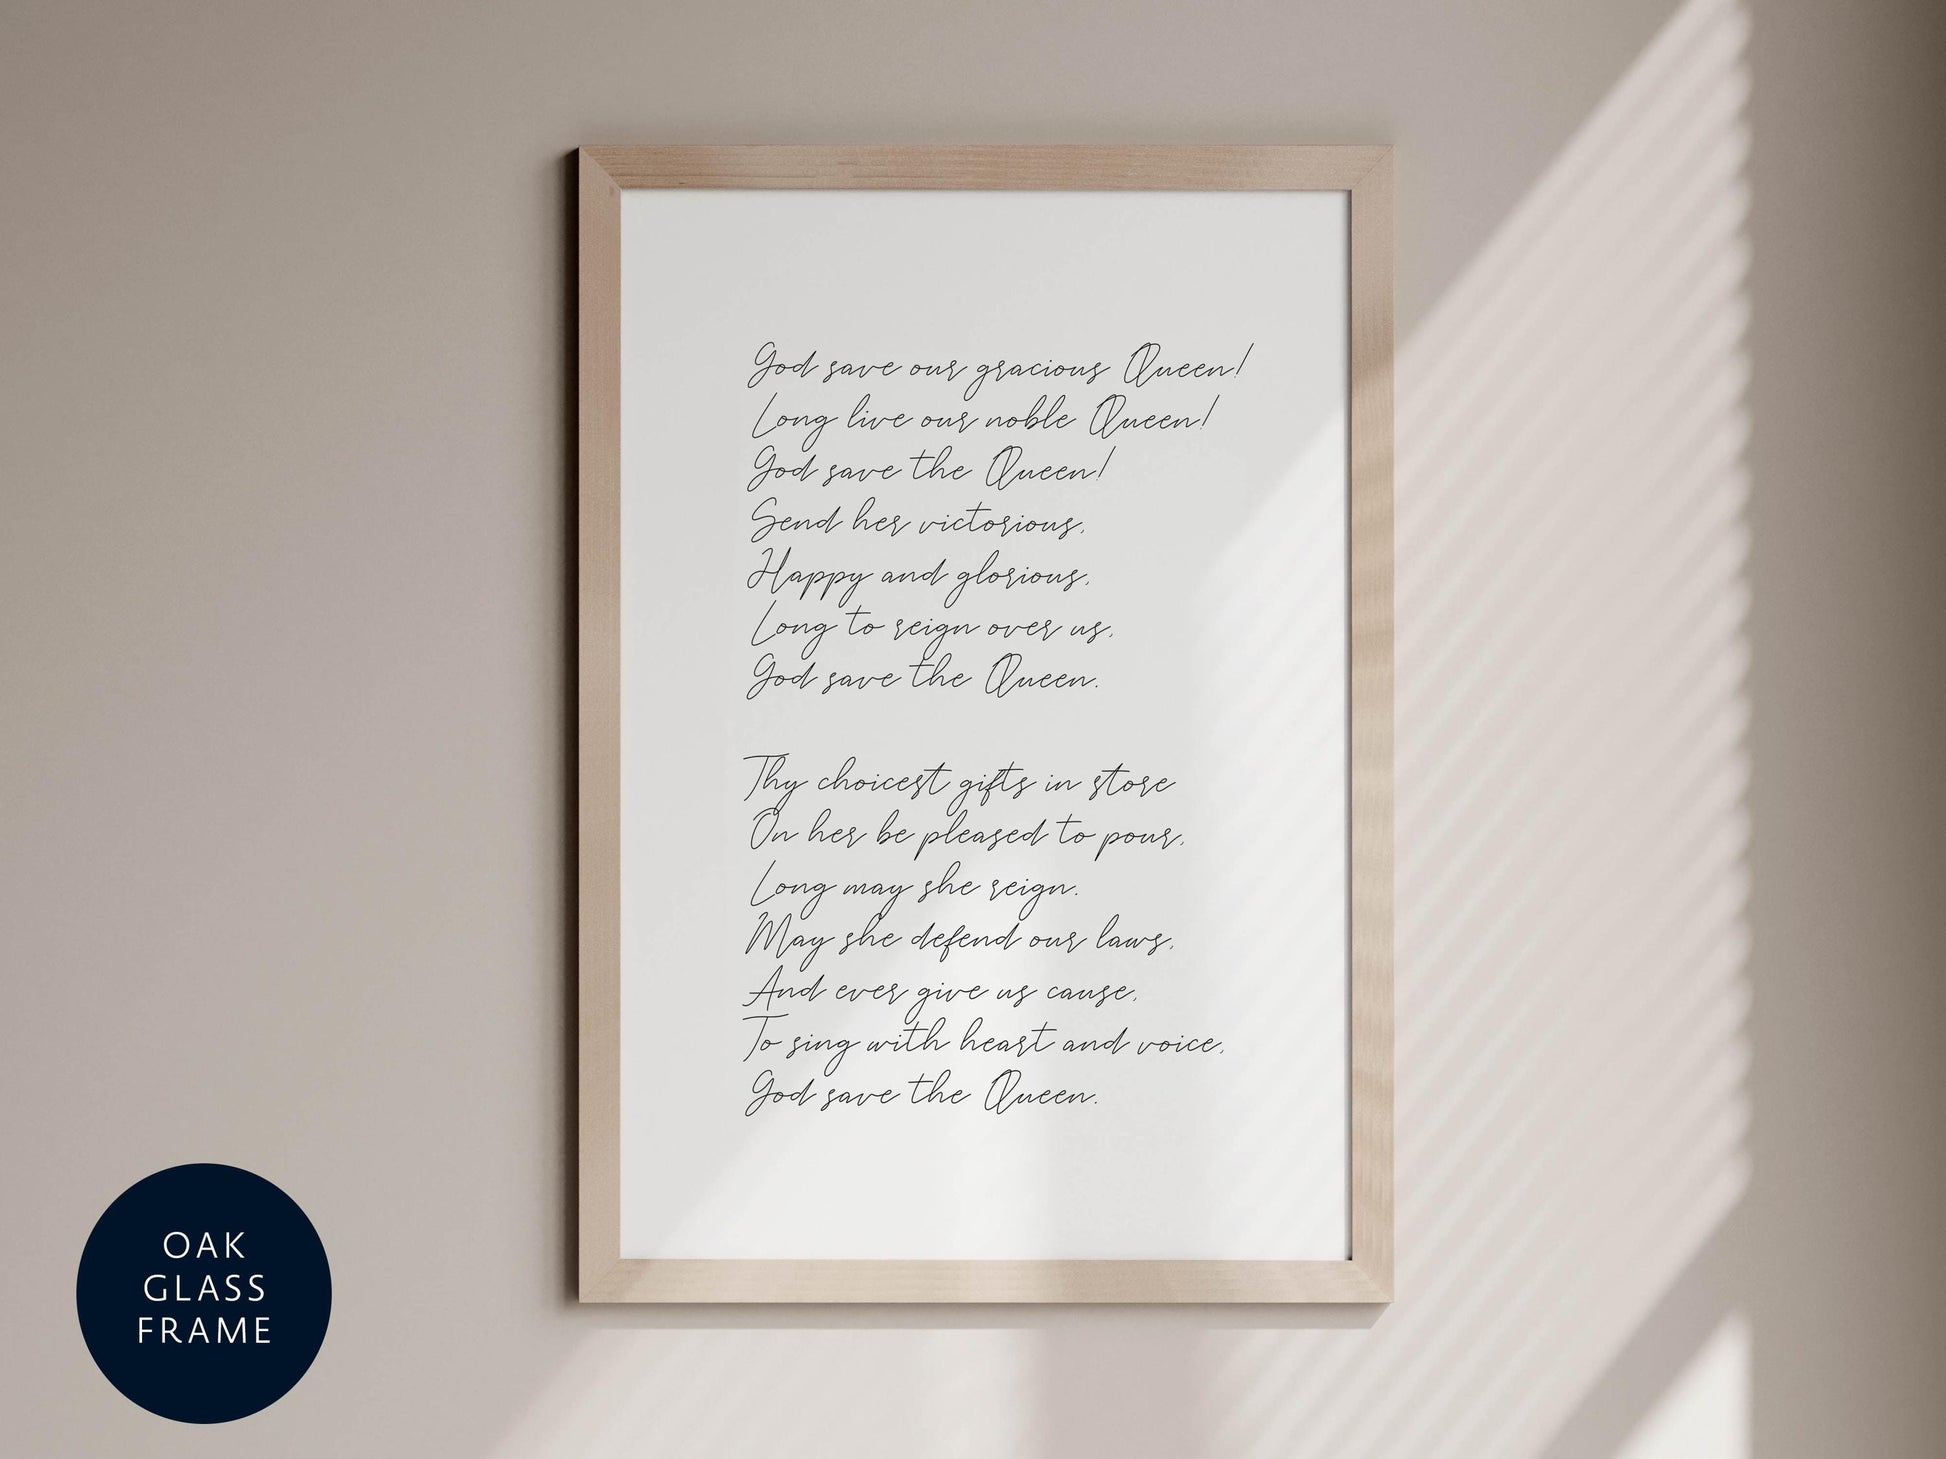 God save our gracious Queen!
Long live our noble Queen!
God save the Queen!
Send her victorious,
Happy and glorious,
Long to reign over us,
God save the Queen.
Thy choicest gifts in store
On her be pleased to pour,
Long may she reign.
May she defend our laws,
And ever give us cause,
To sing with heart and voice,
God save the Queen.
OAK
GLASS
FRAME